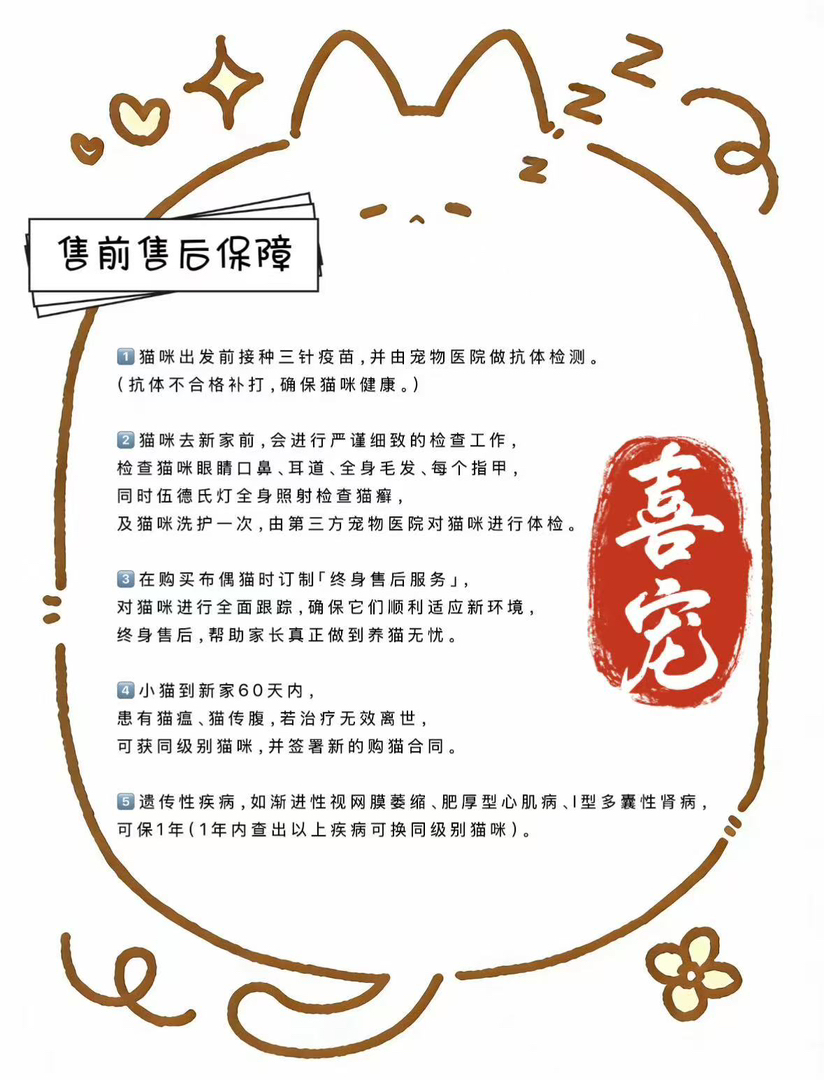 Z
Z
Z
售前售后保障
1 猫咪出发前接种三针疫苗,并由宠物医院做抗体检测。
(抗体不合格补打,确保猫咪健康。)
2 猫咪去新家前,会进行严谨细致的检查工作,
检查猫咪眼睛口鼻、耳道、全身毛发、每个指甲,
同时伍德氏灯全身照射检查猫癣,
及猫咪洗护一次,由第三方宠物医院对猫咪进行体检。
3 在购买布偶猫时订制「终身售后服务」,
对猫咪进行全面跟踪,确保它们顺利适应新环境,
终身售后,帮助家长真正做到养猫无忧。
4 小猫到新家60天内,
患有猫瘟、猫传腹,若治疗无效离世,
可获同级别猫咪,并签署新的购猫合同。
5 遗传性疾病,如渐进性视网膜萎缩、肥厚型心肌病、I型多囊性肾病,
可保1年(1年内查出以上疾病可换同级别猫咪)。
喜宠